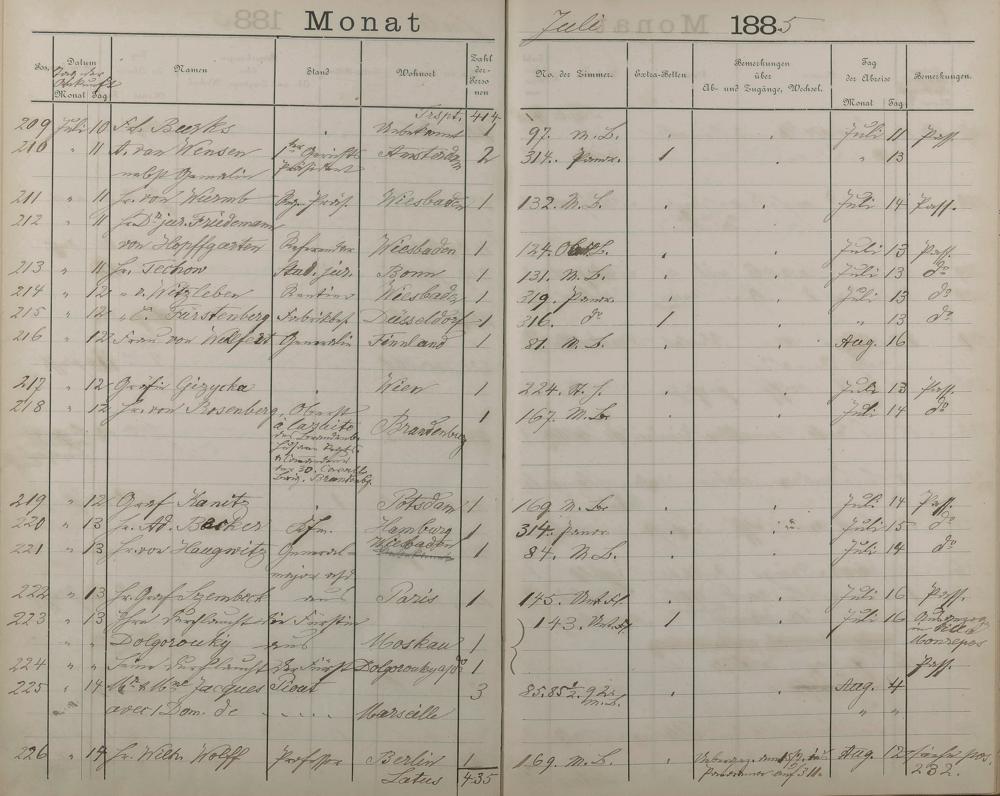 Monat
Juli 1885
Pos. Datum Namen Stand Wohnort Zahl der Personen No. der Zimmer. Extra-Betten. Bemerkungen über Ab- und Zugänge, Wechsel. Tag der Abreise Bemerkungen.
Tag der
Monat Tag Monat Tag
Trspt. 414
209 Juli 10 Unbekannt 1 97. M. B. Juli 11 Pass.
210 " 11 A. van Wensen 1ter Gerichts Amsterdam 2 314. Panor. 1 " 13
nebst Gemalin Präsident
211 " 11 Hr. von Wurmb Reg. Präs. Wiesbaden 1 132. M. B. Juli 14 Pass.
212 " 11 Hr. Dr jur. Friedemann
von Hopffgarten Referendar Wiesbaden 1 124. Juli 13 Pass.
213 " 11 Hr. Techow Stud. jur. Bonn 1 131. M. B. Juli 13 do
214 " 12 " v. Witzleben Rentier Wiesbaden 1 319. Panor. Juli 13 do
215 " 12 " C. Fürstenberg Fabrikbes. Düsseldorf 1 316. do 1 " 13 do
216 " 12 Frau von Generalin Finnland 1 81. M. B. Aug. 16
217 " 12 Gräfin Gizycka Wien 1 224. Juli 13 Pass.
218 " 12 Hr. von Rosenberg, Oberst 1 167. M. B. Juli 14 do
à la suite Brandenburg
des Brandenb.
Husaren Regts.
Commandeur
der 30. Cavall.
Brig.
219 " 12 Graf Kanitz Potsdam 1 169. M. B. Juli 14 Pass.
220 " 13 Hr. Ad. Becker Kfm. Hamburg 1 314. Panor. " Juli 15 do
221 " 13 Hr. von Haugwitz General- Wiesbaden 1 84. M. B. Juli 14 do
major
222 " 13 Hr. Graf Szembeck aus Paris 1 145. Juli 16 Pass.
223 " 13 Ihre Durchlaucht die Fürstin 143. 1 Juli 16 Villa
" " Dolgorouky aus Moskau 1 Monrepos
224 " " Seine Durchlaucht der Fürst Dolgorouky a/do 1 Pass.
225 " 14 Mr & Mme Jacques 3 85. 85 1/2. 92. M. B. Aug. 4
avec 1 Dom. de Marseille " "
226 " 14 Hr. Wilh. Wolff Professor Berlin 1 169. M. B. Aug. 12 siehe pos.
Latus 435 Panorama auf 311. 232.